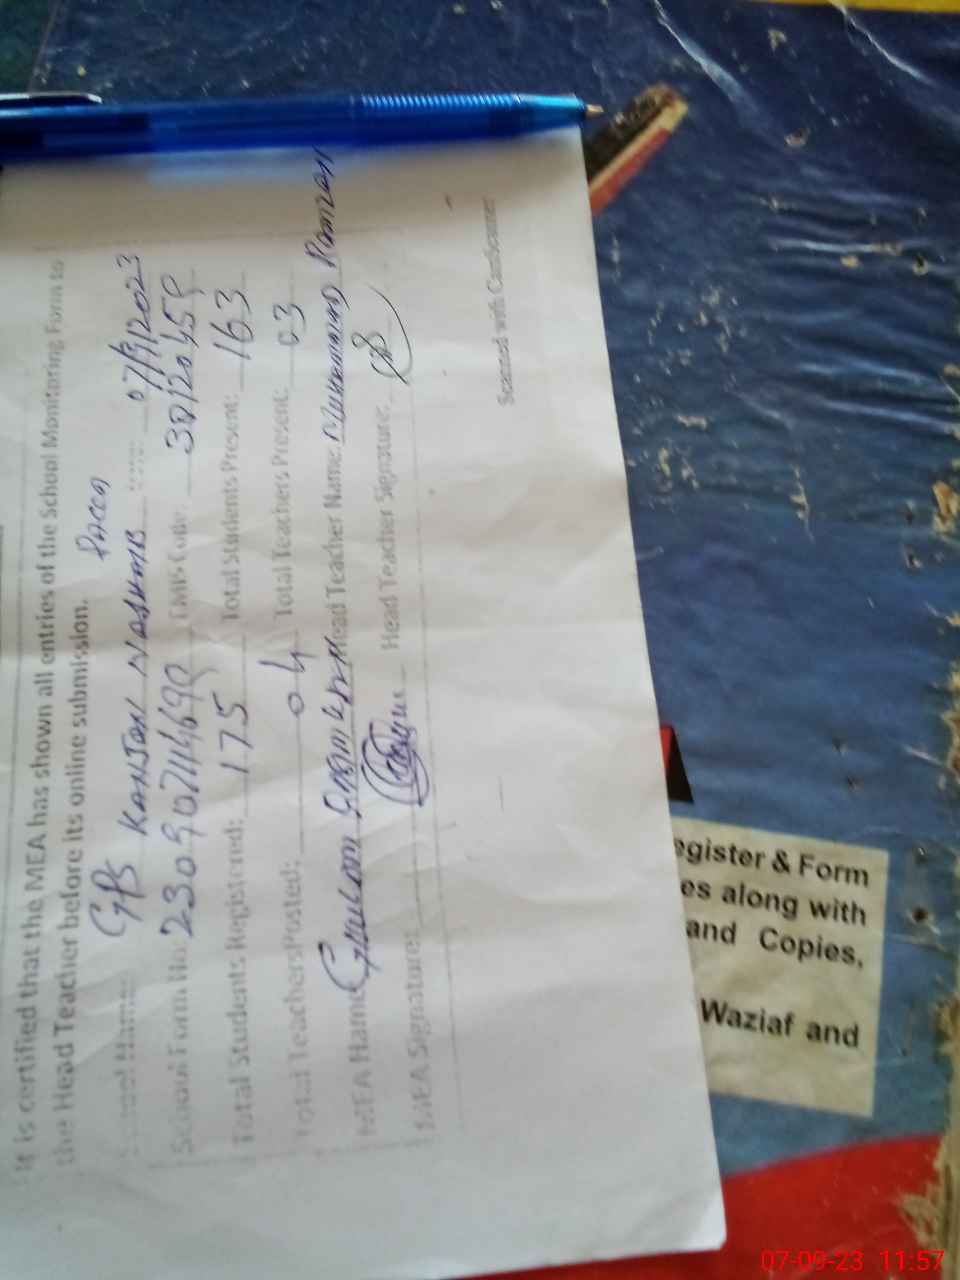 It is certified that the MEA has shown all entries of the School Monitoring Form to
the Head Teacher before its online submission.
Pacca
School Name: GPS KANJAN NASHMB Date: 07/9/2023
School Form No: EMIS Code:
Total Students Registered: 175 Total Students Present: 163
Total Teachers Posted: 04 Total Teachers Present: 03
MEA Name: Head Teacher Name: Muhammad Ramzan
MEA Signature: Head Teacher Signature:
Scanned with CamScanner
egister & Form
es along with
and Copies,
Waziaf and
07-09-23 11:57